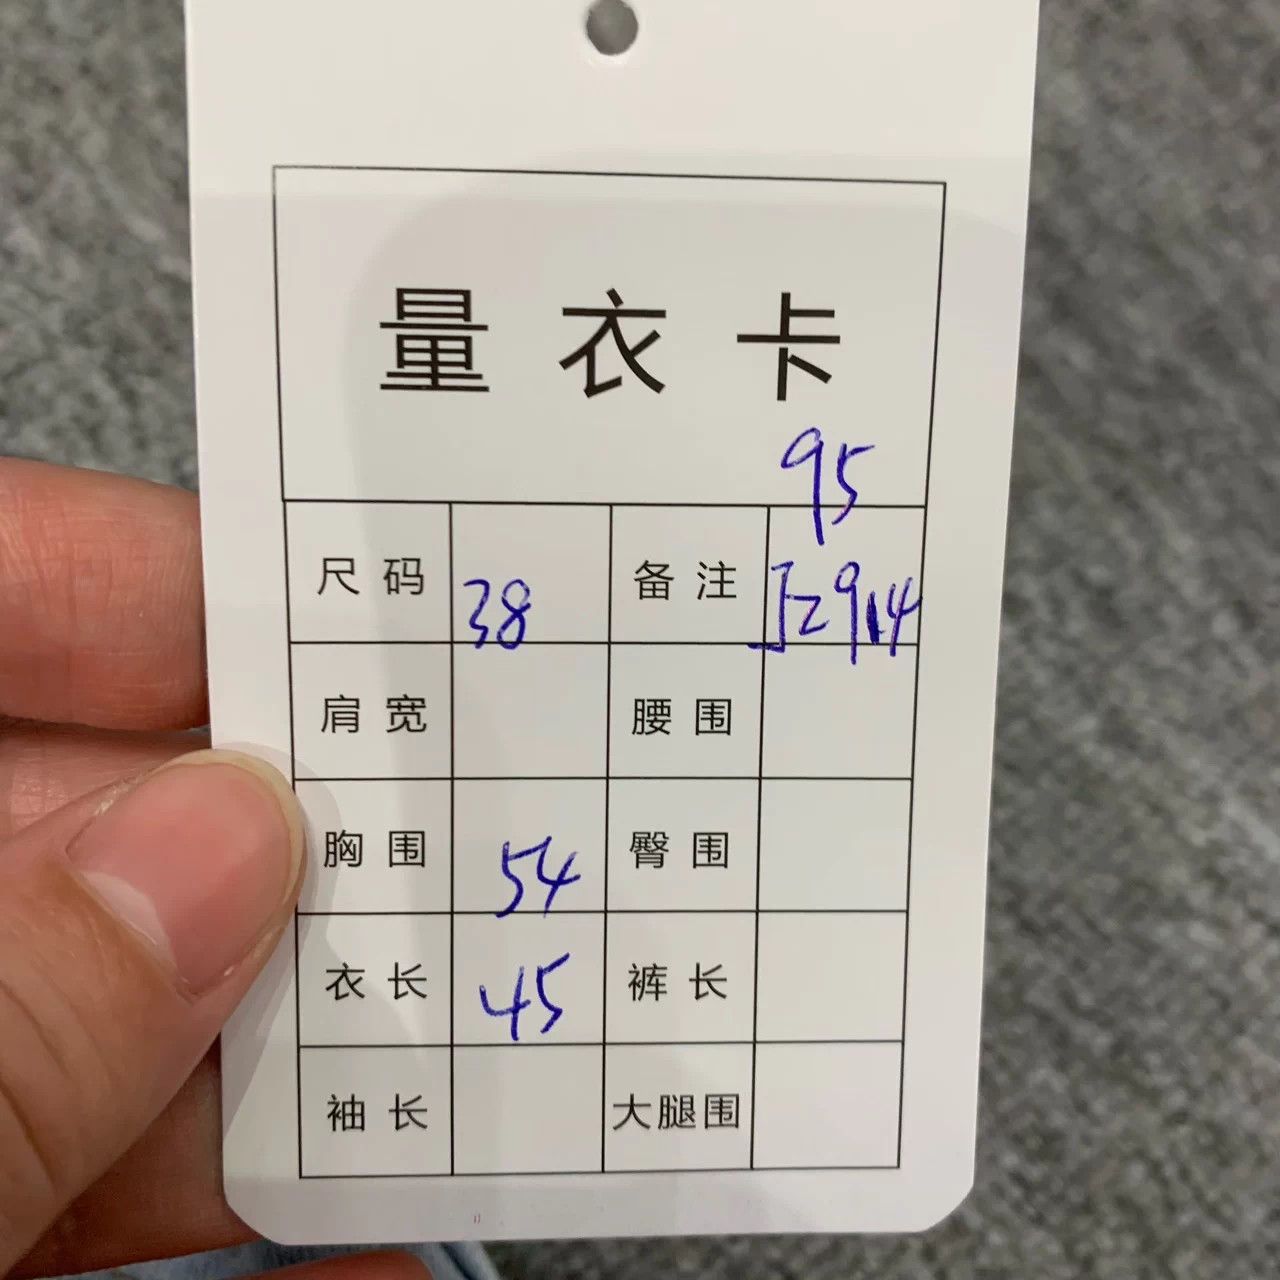 量衣卡
95
尺码 38 备注 J2914
肩宽 腰围
胸围 54 臀围
衣长 45 裤长
袖长 大腿围